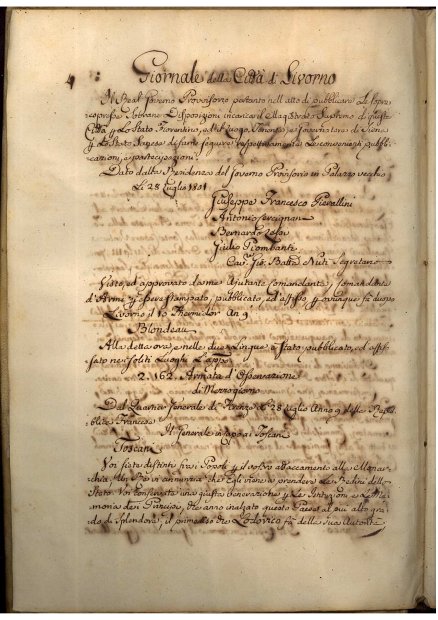 4
Giornale della Città di Livorno
Il Real Governo Provvisorio pertanto nell atto di pubblicare Le
Sovrane Disposizioni incarica il Magistrato Supremo di questa
Città p. Lo Stato Fiorentino, e il Governatore di Siena
p. Lo Stato Senese di farle seguire respettivamente Le convenienti pubbli-
cazioni, e partecipazioni
Dato dalla Residenza del Governo Provvisorio in Palazzo vecchio
Li 28 Luglio 1801
Giuseppe Francesco Pierallini
Antonio
Bernardo
Giulio Piombanti
Cav. Gio. Batta Nuti Segretario
Visto, ed approvato da me Ajutante Comandante, Comandante
d'Armi p. essere stampato, pubblicato, ed affisso p. ovunque fa duopo
Livorno il 10 Thermidor An 9
Blondeau
Alla detta ora, e nelle due Lingue è stato pubblicato, ed affis-
sato nei soliti Luoghi L'app.
2. 162. Armata d'Osservazione
di Mezzogiorno
Dal Quartier Generale di Firenze Li 28 Luglio Anno 9 della Repu-
blica Francese
Il Generale in capo ai Toscani
Toscani
Voi siete distinti fra i Popoli p. il vostro attaccamento alla Monar-
chia. Un Rè vi annunzia che Egli viene a prendere Le Redini dello
Stato. Voi conservate una giusta venerazione p. Le Istituzioni e La Me-
moria dei Principi, che anno inalzato questo Paese al più alto gra-
do di Splendore, il primo che Lodovico fà della sua Autorità,